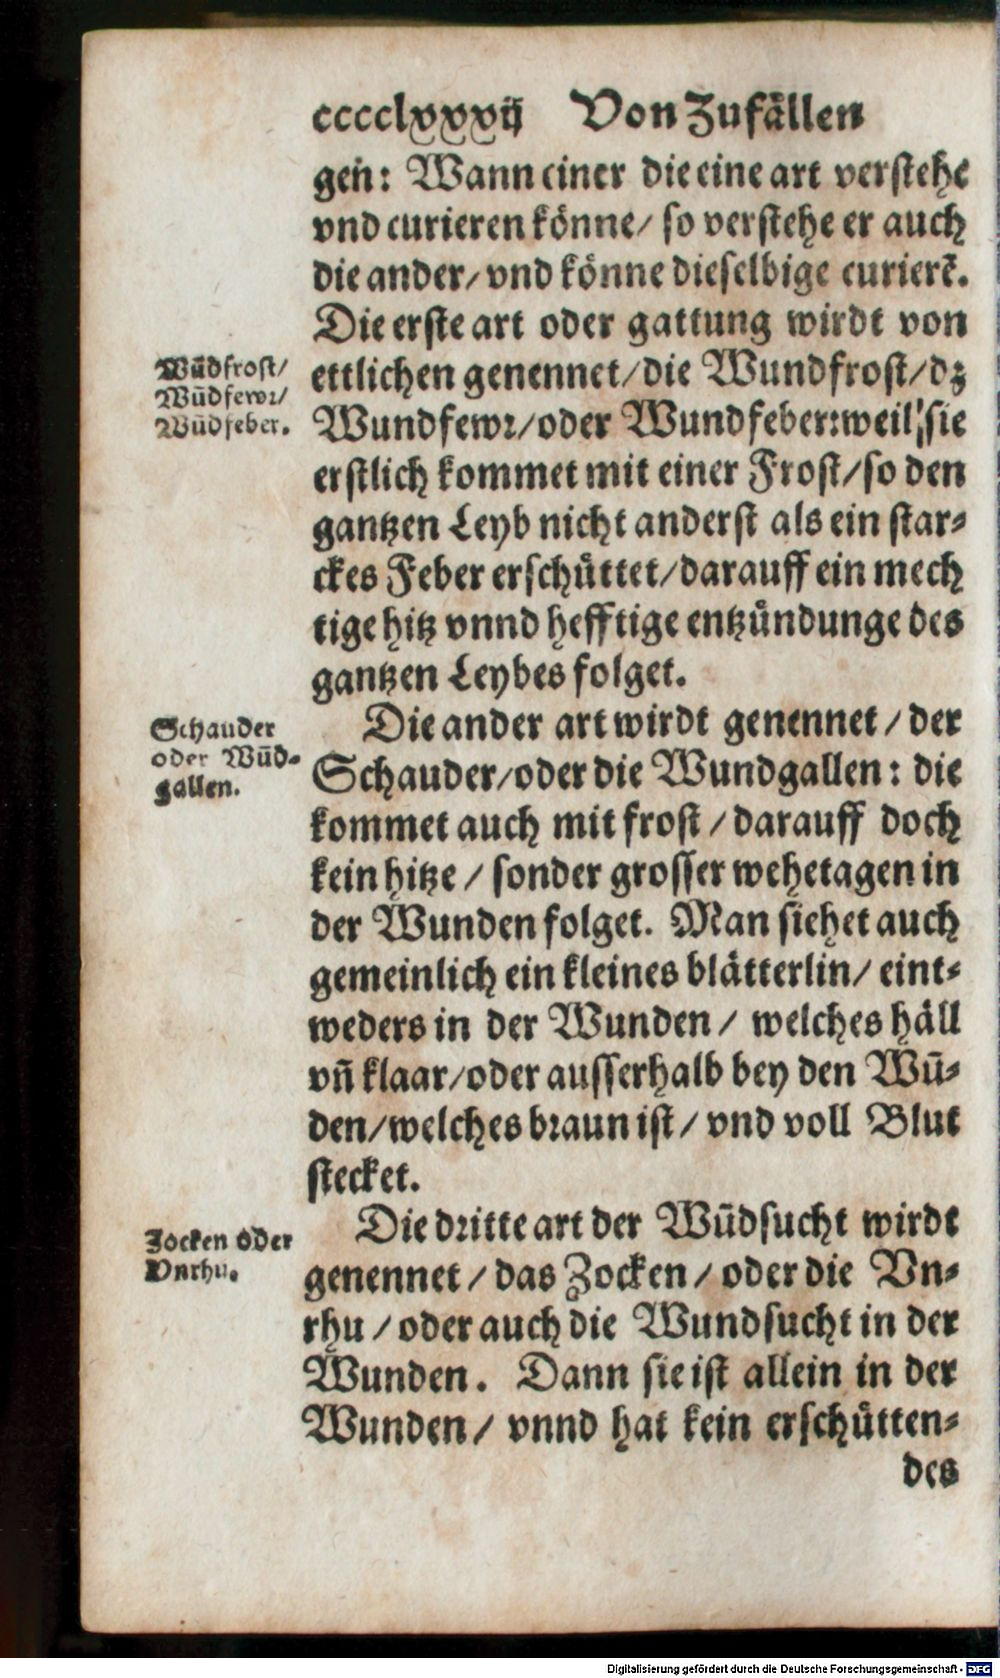 cccclxxxvij Von Zufällen
gen: Wann einer die eine art verstehe
vnd curieren könne/ so verstehe er auch
die ander/ vnd könne dieselbige curierē.
Die erste art oder gattung wirdt von
Wūdfrost/
Wūdfewr/
Wūdfeber.
ettlichen genennet/die Wundfrost/dz
Wundfewr/oder Wundfeber:weil sie
erstlich kommet mit einer Frost/so den
gantzen Leyb nicht anderst als ein star-
ckes Feber erschüttet/darauff ein mech
tige hitz vnnd hefftige entzündunge des
gantzen Leybes folget.
Schauder
oder Wūd-
gallen.
Die ander art wirdt genennet / der
Schauder/oder die Wundgallen: die
kommet auch mit frost / darauff doch
kein hitze / sonder grosser wehetagen in
der Wunden folget. Man siehet auch
gemeinlich ein kleines blätterlin/ eint-
weders in der Wunden / welches häll
vñ klaar/oder ausserhalb bey den Wū-
den/welches braun ist/ vnd voll Blut
stecket.
Zocken oder
Vnrhu.
Die dritte art der Wūdsucht wirdt
genennet / das Zocken / oder die Vn-
rhu / oder auch die Wundsucht in der
Wunden. Dann sie ist allein in der
Wunden / vnnd hat kein erschütten-
des
Digitalisierung gefördert durch die Deutsche Forschungsgemeinschaft - DFG